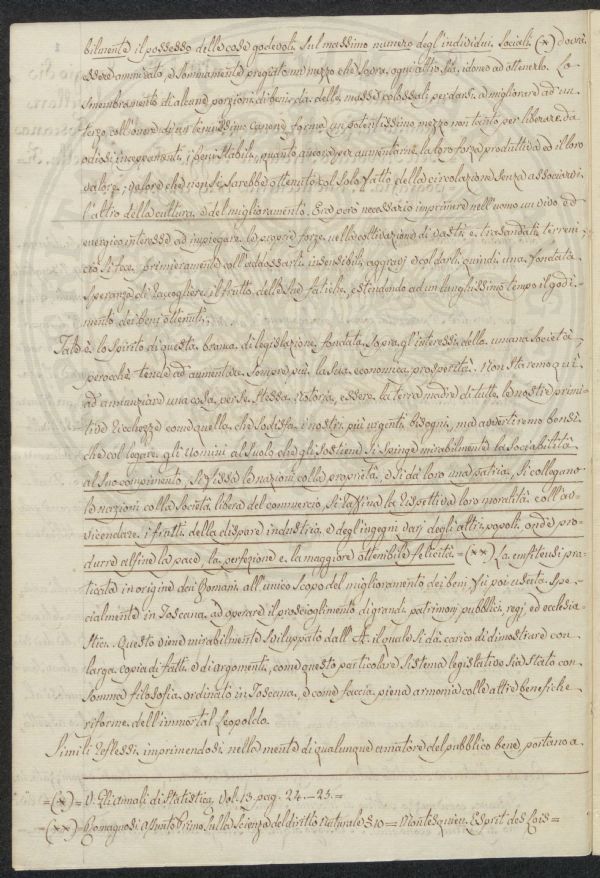 bilmente il possesso delle cose godevoli sul massimo numero degl'individui sociali (*) dovrà
essere ammirato, e sommamente pregiato un mezzo che sovra ogni altro sia idoneo ad ottenerlo. Lo
smembramento di alcune porzioni di beni da delle masse colossali per darsi a migliorare ad un
terzo coll'onere di un tenuissimo canone forma un potentissimo mezzo non tanto per liberare da
odiosi inceppamenti i beni stabili, quanto ancora per aumentarne la loro forza produttiva ed il loro
valore; valore che non si sarebbe ottenuto col solo fatto della circolazione senza associarvi
l'altro della cultura, e del miglioramento. Era però necessario imprimere nell'uomo un vivo ed
energico interesse ad impiegare le proprie forze nella coltivazione di vasti e trasandati terreni,
ciò si fece primieramente coll'addossarli insensibili aggravj e col darli quindi una fondata
speranza di raccogliere il frutto delle sue fatiche, estendendo ad un lunghissimo tempo il godi-
mento dei beni ottenuti.
Tale è lo spirito di questa branca di legislazione fondata sopra gl'interessi della umana società
perocchè tende ad aumentare sempre più la sua economica prosperità. Non staremo quì
ad annunziare una cosa per se stessa notoria, essere la terra madre di tutte le nostre primi-
tive ricchezze come quella che sodisfa i nostri più urgenti bisogni, ma avvertiremo bensì
che col legare gli uomini al suolo che gli sostiene si spinge mirabilmente la sociabilità
al suo compimento, si fissa le nazioni colla proprietà, e si dà loro una patria, si collegano
le nazioni colla società libera del commercio, si raffina la rispettiva loro moralità coll'av-
vicendare i frutti della dispare industria e degl'ingegni varj degli altri popoli, ond'è pro-
durre alfine la pace, la perfezione e la maggiore ottenibile felicità = (**) La enfiteusi pra-
ticata in origine dai Romani all'unico scopo del miglioramento dei beni fu poi usata spe-
cialmente in Toscana ad operare il proscioglimento di grandi patrimonj pubblici, regj ed ecclesia-
stici. Questo viene mirabilmente sviluppato dall'A. il quale si dà carico di dimostrare con
larga copia di fatti e di argomenti, come questo particolare sistema legislativo sia stato con
somma filosofia ordinato in Toscana, e come faccia piena armonia colle altre benefiche
riforme dell'immortal Leopoldo.
Simili reflessi imprimendosi nella mente di qualunque amatore del pubblico bene, portano a
= (*) = V. Gli Annali di Statistica, Vol. 13. pag. 24. - 25. =
= (**) = Romagnosi Assunto Primo sulla Scienza del diritto naturale § 10 = Montesquieu. Esprit des Lois =